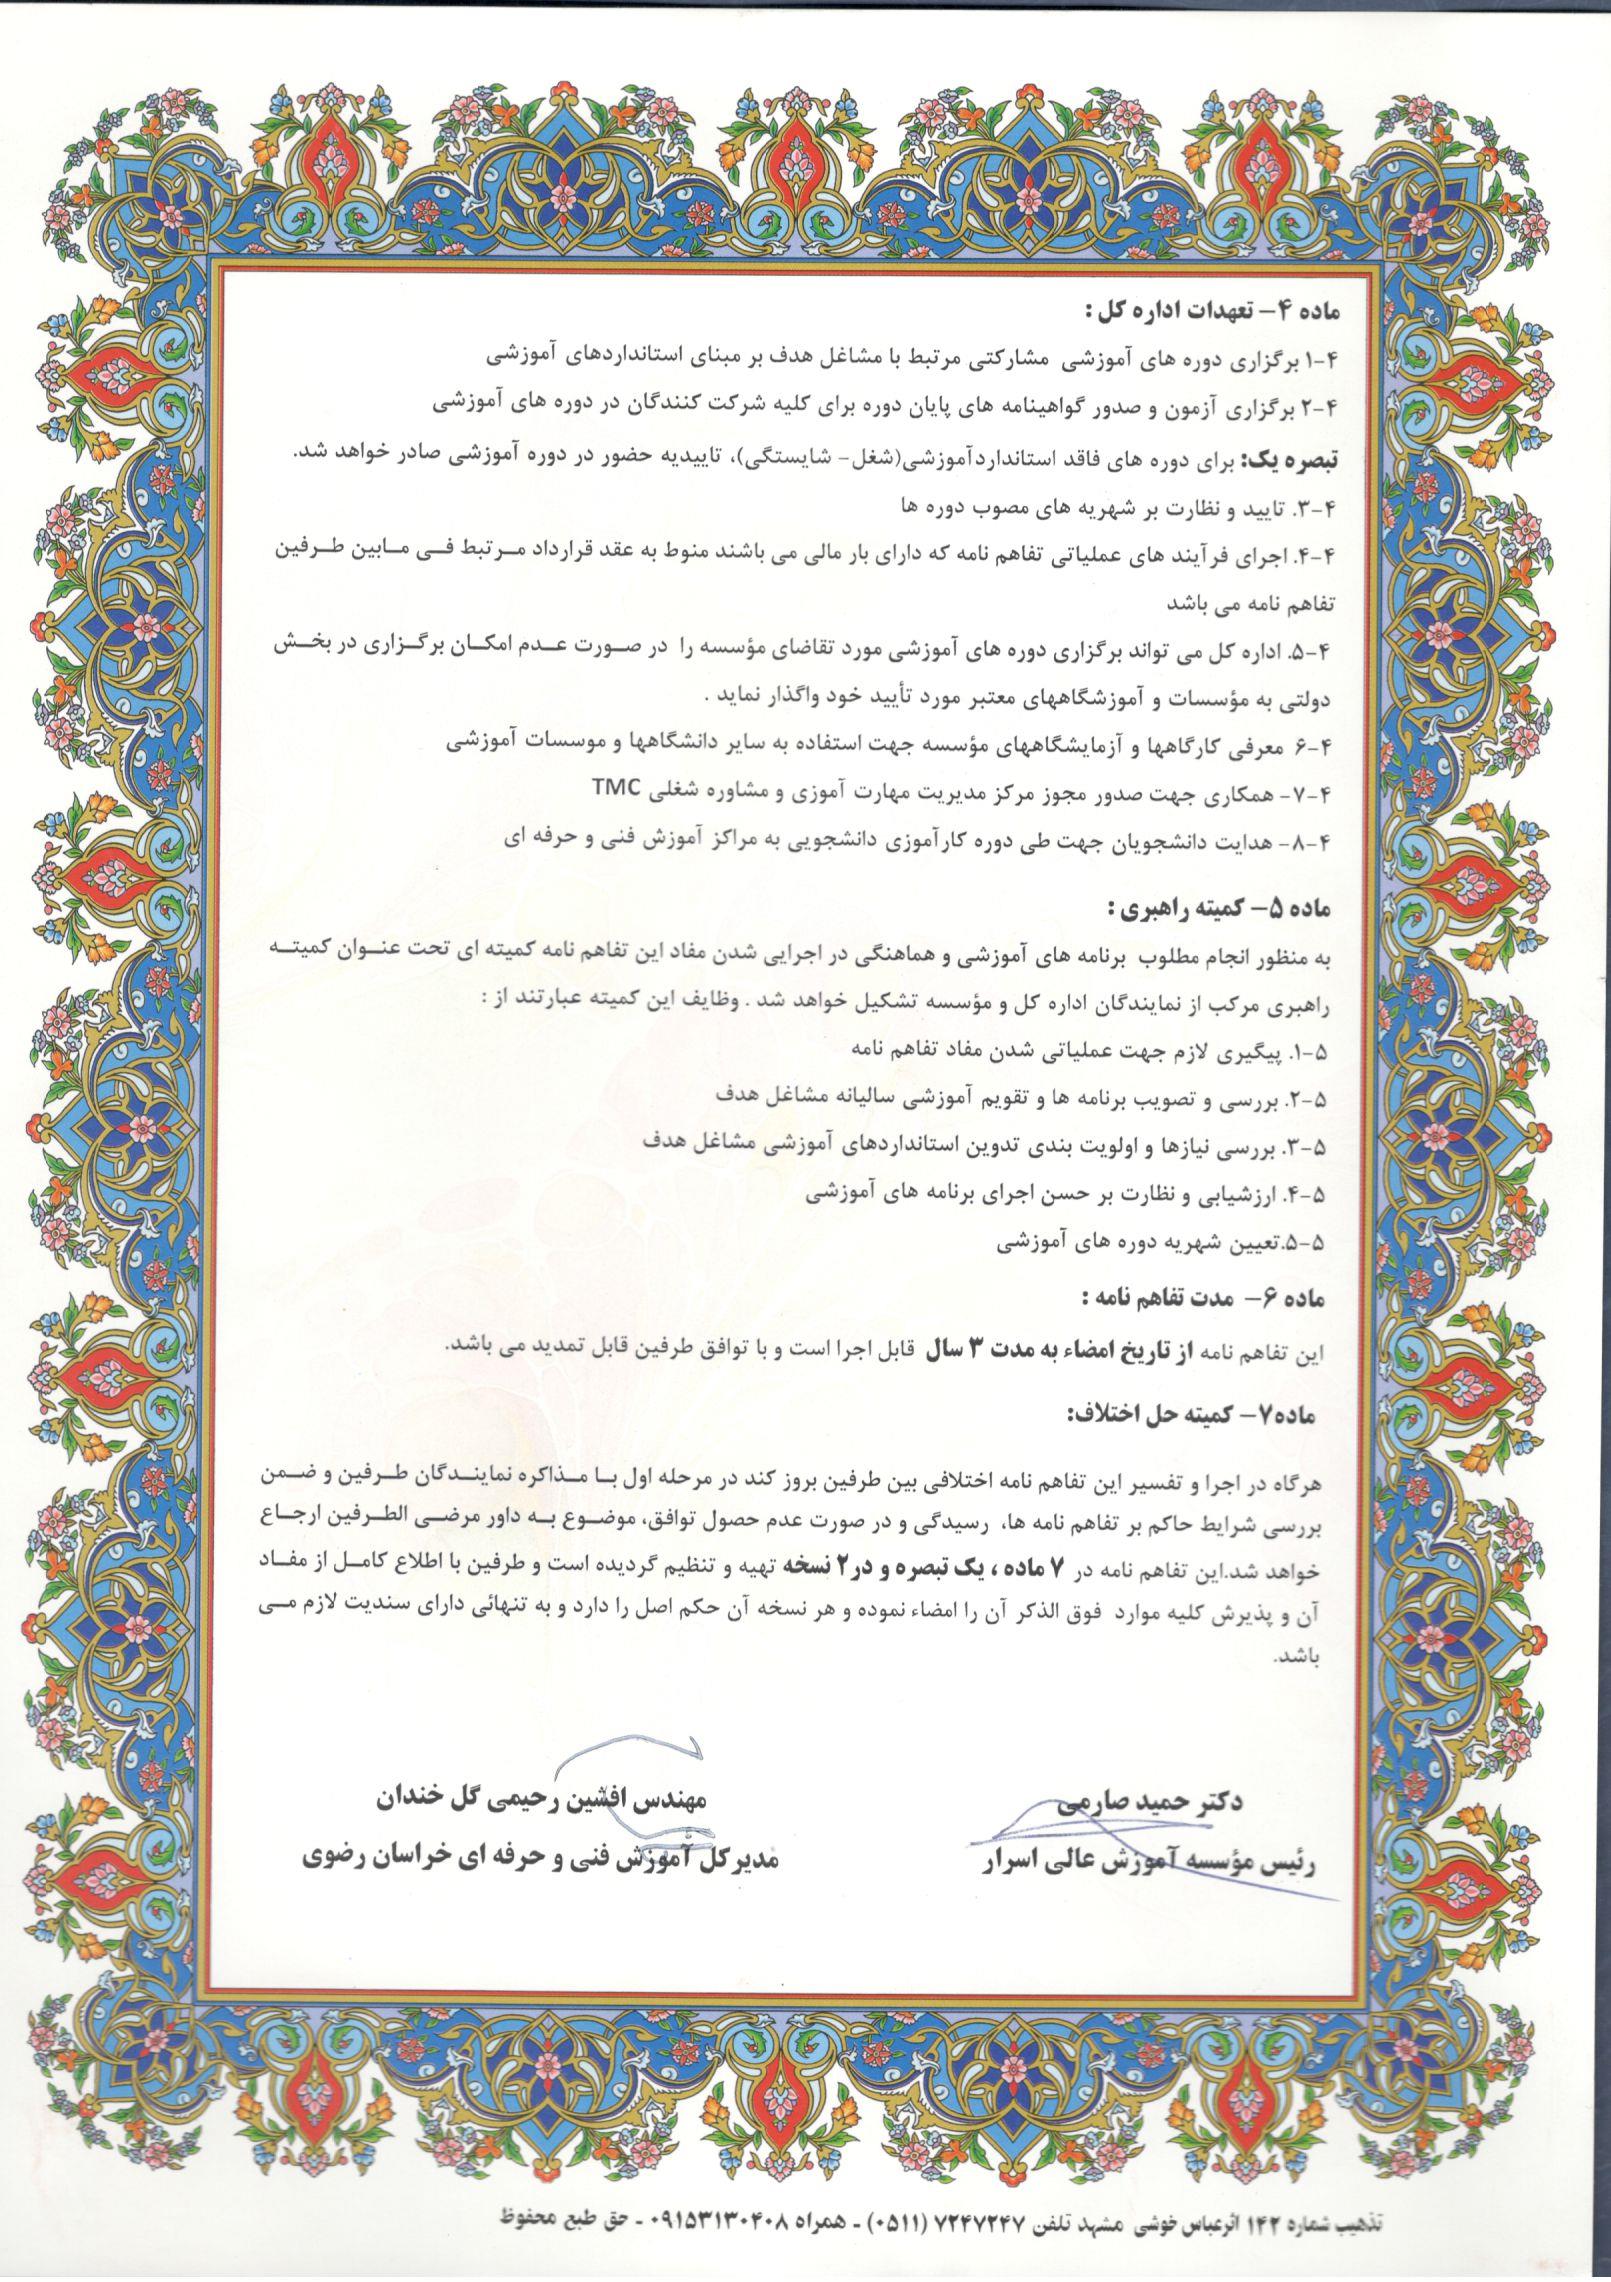 ماده ۴– تعهدات اداره کل :
۴-۱ برگزاری دوره های آموزشی مشارکتی مرتبط با مشاغل هدف بر مبنای استانداردهای آموزشی
۴-۲ برگزاری آزمون و صدور گواهینامه های پایان دوره برای کلیه شرکت کنندگان در دوره های آموزشی
تبصره یک: برای دوره های فاقد استانداردآموزشی(شغل- شایستگی)، تاییدیه حضور در دوره آموزشی صادر خواهد شد.
۴-۳. تایید و نظارت بر شهریه های مصوب دوره ها
۴-۴. اجرای فرآیند های عملیاتی تفاهم نامه که دارای بار مالی می باشند منوط به عقد قرارداد مرتبط فی مابین طرفین
تفاهم نامه می باشد
۴-۵. اداره کل می تواند برگزاری دوره های آموزشی مورد تقاضای مؤسسه را در صورت عدم امکان برگزاری در بخش
دولتی به مؤسسات و آموزشگاههای معتبر مورد تأیید خود واگذار نماید .
۴-۶ معرفی کارگاهها و آزمایشگاههای مؤسسه جهت استفاده به سایر دانشگاهها و موسسات آموزشی
۴-۷- همکاری جهت صدور مجوز مرکز مدیریت مهارت آموزی و مشاوره شغلی TMC
۴-۸- هدایت دانشجویان جهت طی دوره کارآموزی دانشجویی به مراکز آموزش فنی و حرفه ای
ماده ۵– کمیته راهبری :
به منظور انجام مطلوب برنامه های آموزشی و هماهنگی در اجرایی شدن مفاد این تفاهم نامه کمیته ای تحت عنوان کمیته
راهبری مرکب از نمایندگان اداره کل و مؤسسه تشکیل خواهد شد . وظایف این کمیته عبارتند از :
۵-۱. پیگیری لازم جهت عملیاتی شدن مفاد تفاهم نامه
۵-۲. بررسی و تصویب برنامه ها و تقویم آموزشی سالیانه مشاغل هدف
۵-۳. بررسی نیازها و اولویت بندی تدوین استانداردهای آموزشی مشاغل هدف
۵-۴. ارزشیابی و نظارت بر حسن اجرای برنامه های آموزشی
۵-۵.تعیین شهریه دوره های آموزشی
ماده ۶– مدت تفاهم نامه :
این تفاهم نامه از تاریخ امضاء به مدت ۳ سال قابل اجرا است و با توافق طرفین قابل تمدید می باشد.
ماده۷– کمیته حل اختلاف:
هرگاه در اجرا و تفسیر این تفاهم نامه اختلافی بین طرفین بروز کند در مرحله اول با مذاکره نمایندگان طرفین و ضمن
بررسی شرایط حاکم بر تفاهم نامه ها، رسیدگی و در صورت عدم حصول توافق، موضوع به داور مرضی الطرفین ارجاع
خواهد شد.این تفاهم نامه در ۷ ماده ، یک تبصره و در۲ نسخه تهیه و تنظیم گردیده است و طرفین با اطلاع کامل از مفاد
آن و پذیرش کلیه موارد فوق الذکر آن را امضاء نموده و هر نسخه آن حکم اصل را دارد و به تنهائی دارای سندیت لازم می
باشد.
دکتر حمید صارمی
رئیس مؤسسه آموزش عالی اسرار
مهندس افشین رحیمی گل خندان
مدیرکل آموزش فنی و حرفه ای خراسان رضوی
تذهیب شماره ۱۴۲ اثرعباس خوشی مشهد تلفن ۷۲۴۷۲۴۷ (۰۵۱۱) ـ همراه ۰۹۱۵۳۱۳۰۴۰۸ ـ حق طبع محفوظ